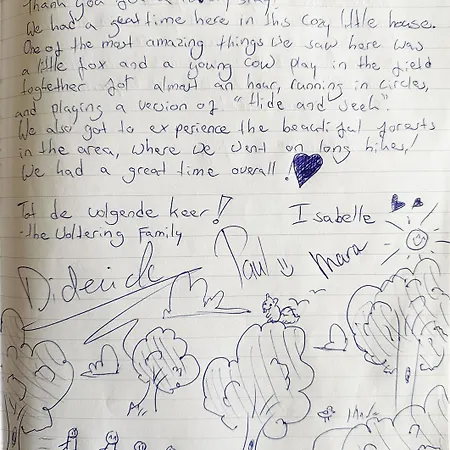 Thank you for a lovely stay!
We had a great time here in this cozy little house.
One of the most amazing things we saw here was
a little fox and a young cow play in the field
together for almost an hour, running in circles,
and playing a version of "Hide and Seek"
We also got to experience the beautiful forests
in the area, where we went on long hikes!
We had a great time overall!
Tot de volgende keer!
Isabelle
-The Woltering Family
Diderick
Paul
Mara